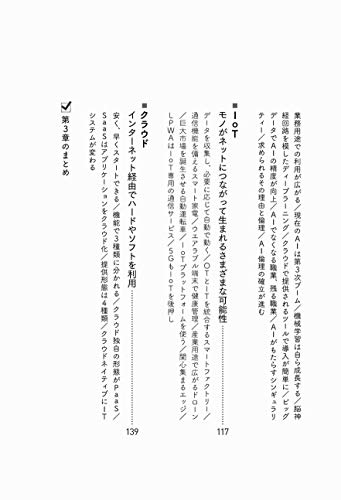 業務用途での利用が広がる／現在のAIは第3次ブーム／機械学習は自ら成長する／脳神
経回路を模したディープラーニング／クラウドで提供されるツールで導入が簡単に／ビッグ
データでAIの精度が向上／AIでなくなる職業、残る職業／AIがもたらすシンギュラリ
ティー／求められるその理由と倫理／AI倫理の確立が進む
■IoT
モノがネットにつながって生まれるさまざまな可能性 117
データを収集し、必要に応じて自動で動く／OTとITを統合するスマートファクトリー／
通信機能を備えるスマート家電／ウエアラブル端末で健康管理／産業用途で広がるドローン
／巨大市場を誕生させる自動運転車／IoTプラットフォームを使う／関心集まるエッジ／
LPWAはIoT専用の通信サービス／5GもIoTを後押し
■クラウド
インターネット経由でハードやソフトを利用 139
安く、早くスタートできる／機能で3種類に分かれる／クラウド独自の形態がPaaS／
SaaSはアプリケーションをクラウド化／提供形態は4種類／クラウドネイティブにIT
システムが変わる
第3章のまとめ